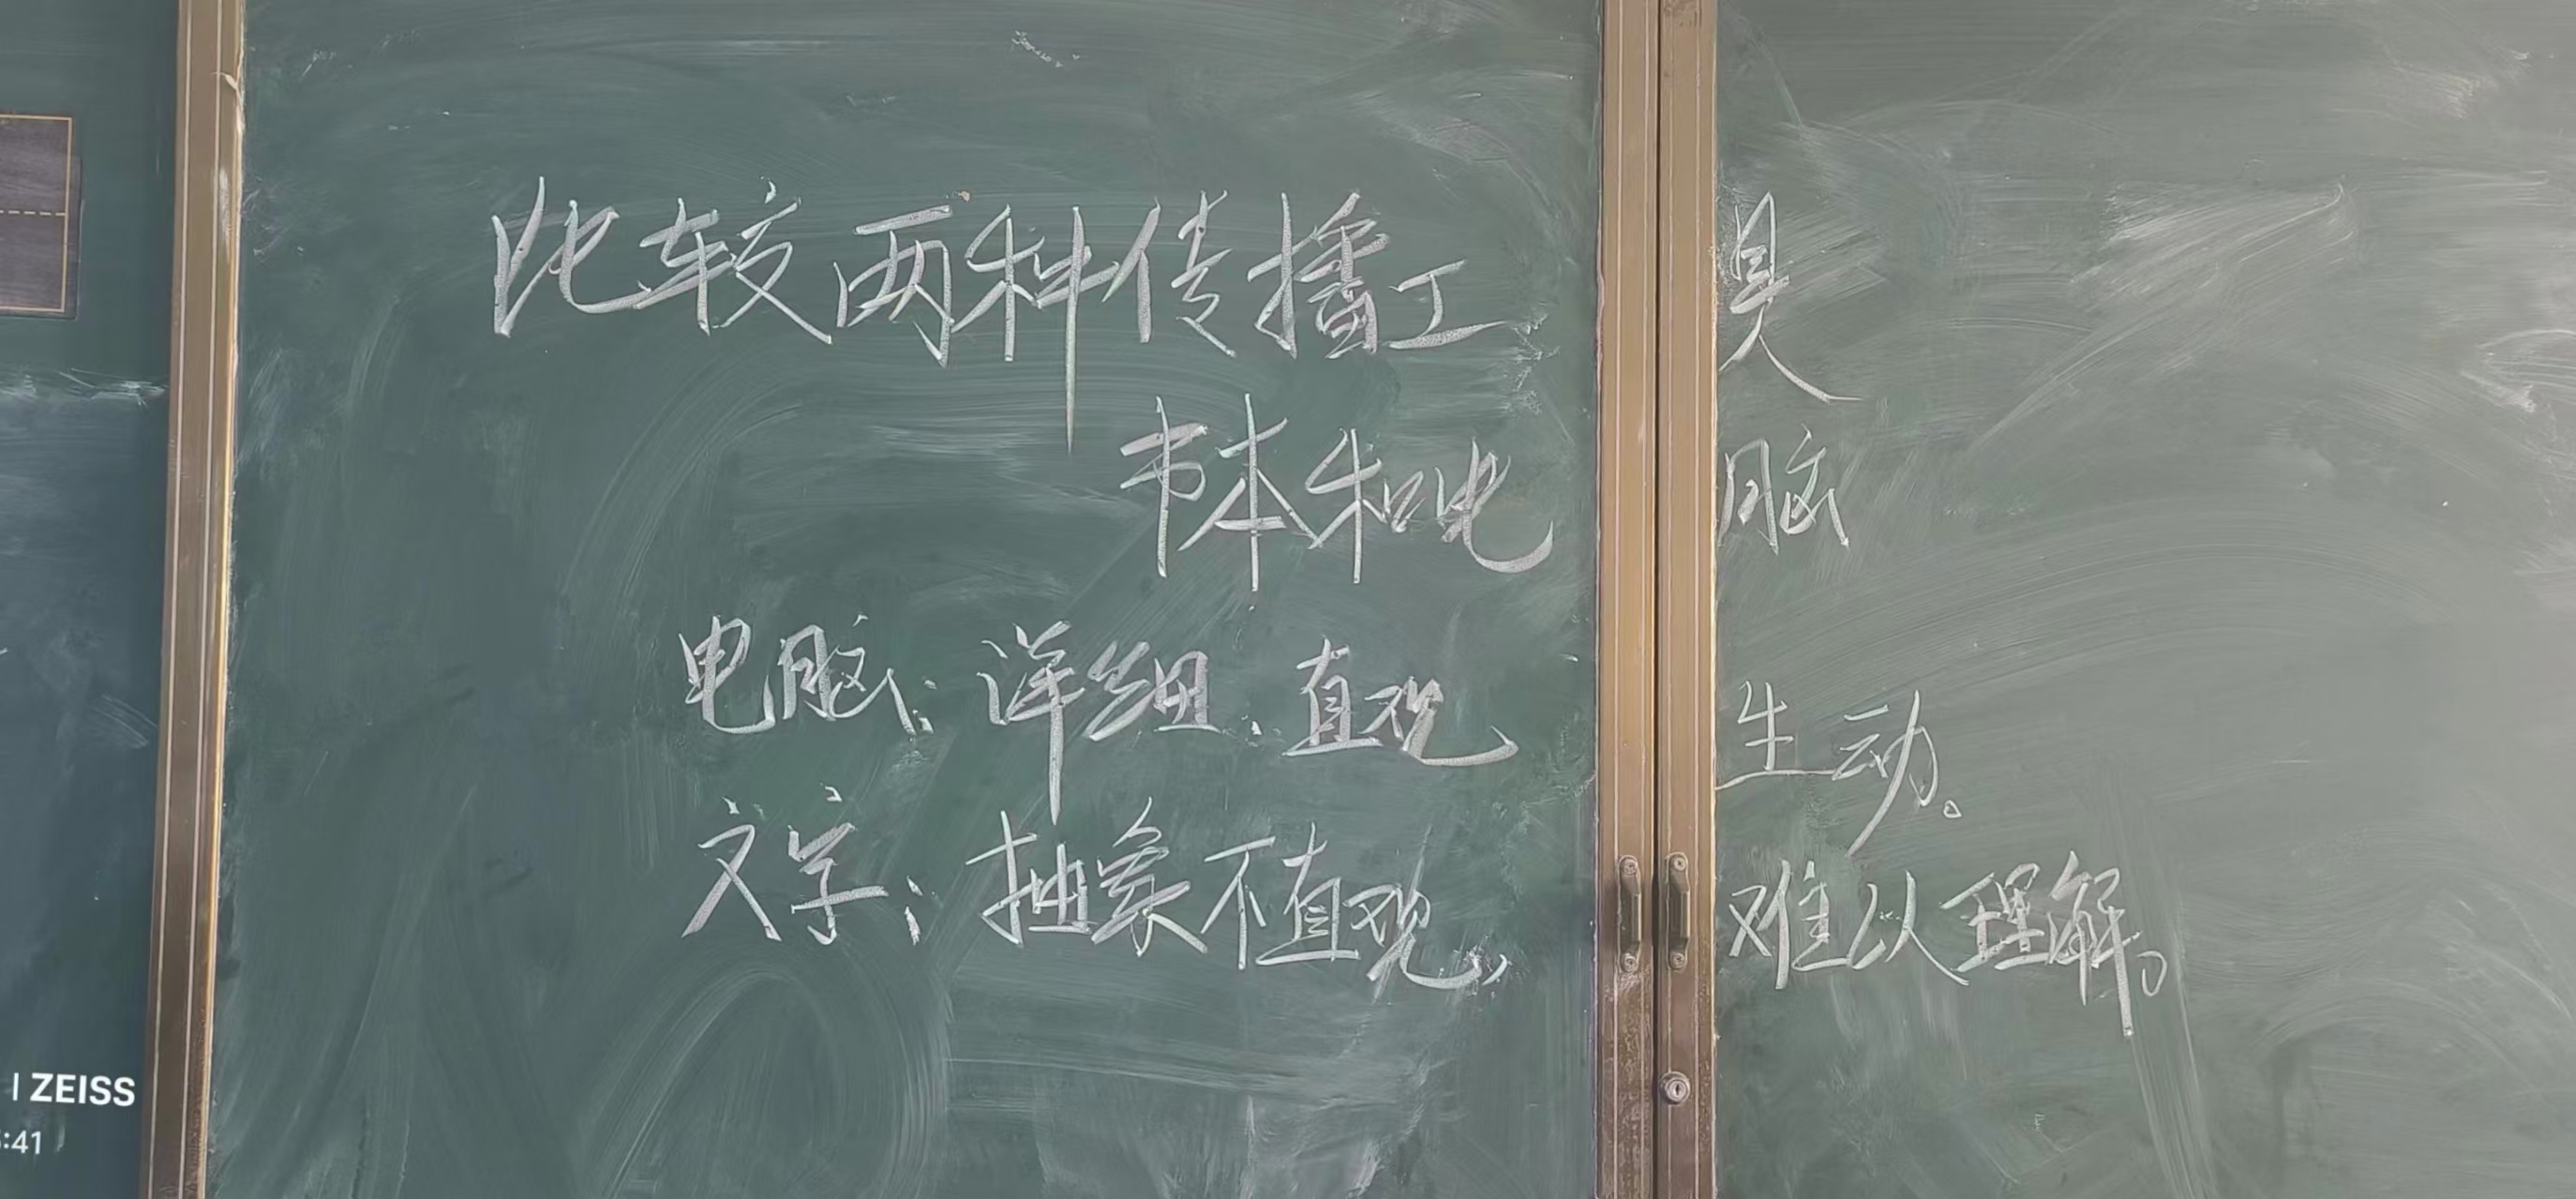 比较两种传播工具
书本和电脑
电脑：详细、直观生动。
文字：抽象不直观，难以理解。
| ZEISS
:41